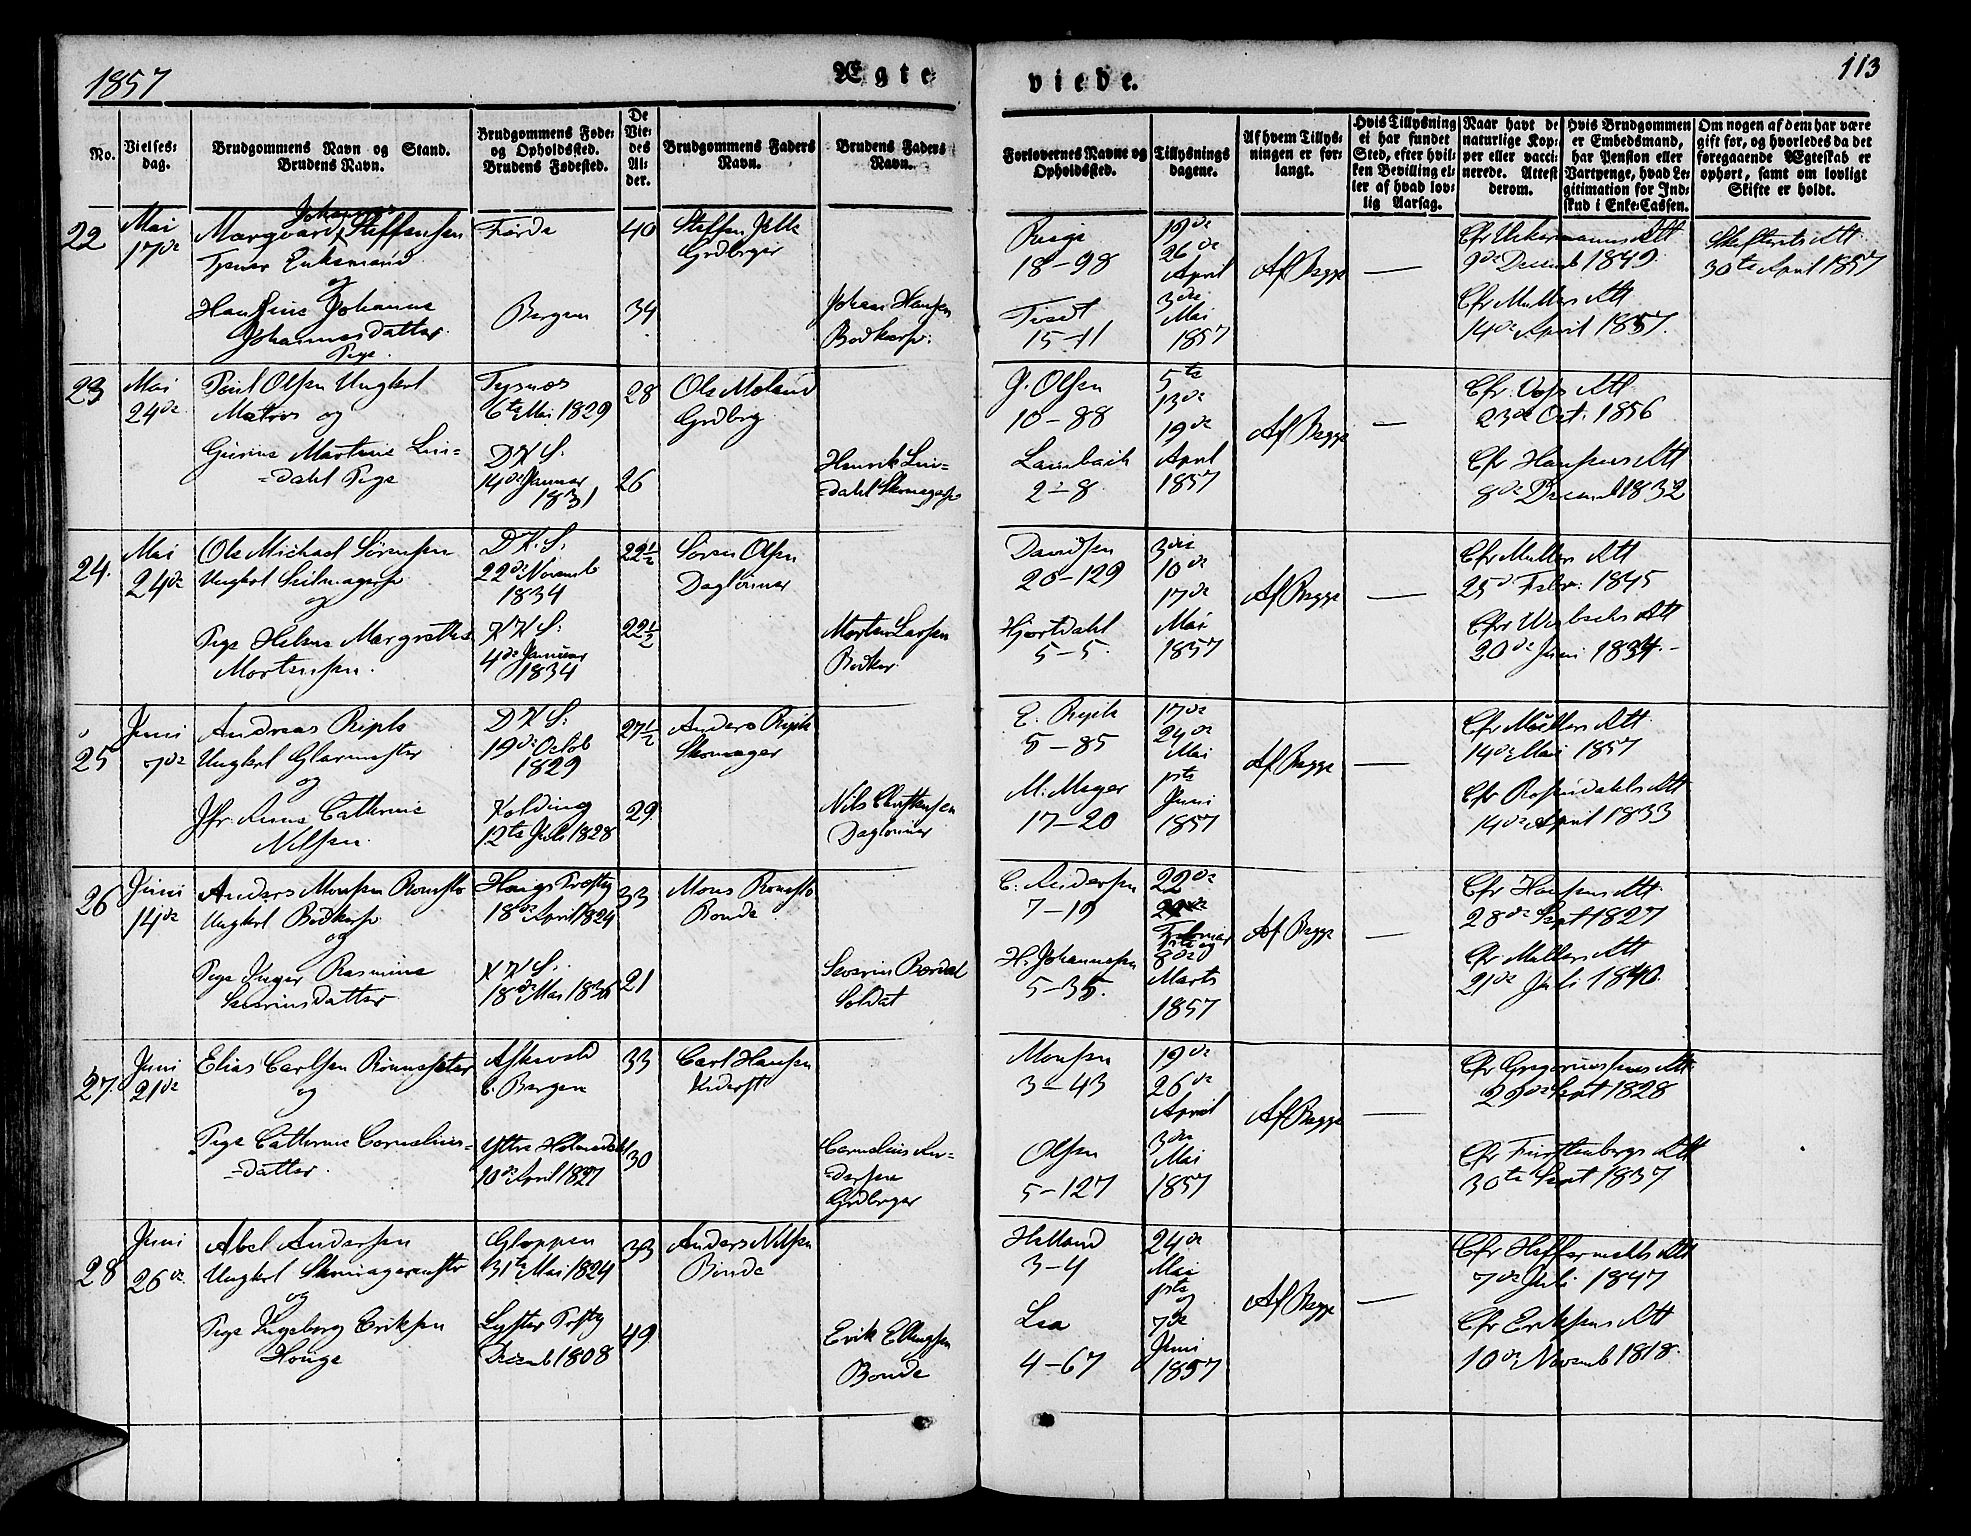 1857
Ægte
viede.
113
No.
Vielses-
dag.
Brudgommens Navn og Stand.
Brudens Navn.
Brudgommens Føde-
og Opholdssted.
Brudens Fødested.
De
Vie-
des
Al-
der.
Brudgommens Faders
Navn.
Brudens Faders
Navn.
Forlovernes Navne og
Opholdssted.
Tillysnings
dagene.
Af hvem Tillys-
ningen er for-
langt.
Hvis Tillysning
ei har fundet
Sted, efter hvil-
ken Bevilling el-
ler af hvad lov-
lig Aarsag.
Naar havt de
naturlige Kop-
per eller vacci-
nerede. Attest
derom.
Hvis Brudgommen
er Embedsmand,
har Pension eller
Vartpenge, hvad Le-
gitimation for Ind-
skud i Enke-Cassen.
Om nogen af dem har være
gift før, og hvorledes da det
foregaaende Ægteskab er
ophørt, samt om lovligt
Skifte er holdt.
22
Mai
17de
Johannes
Marqvard Steffensen
Enkemand
og
Johanne
Johannesdatter
Pige
Førde
Bergen
40
34
Steffen
Grdbrger
Johan Hansen
Bødkersv.
18-98
15-11
19de
26de
April
3die
Mai
1857
Af Begge
—
Cfr Attt
9de Decemb 1849.
Cfr Mullers Att
14de April 1857.
Skifterets Att
30te April 1857
23
Mai
24de
Poul Olsen Ungkrl
Matros og
Gurine Martine Lin=
=dahl Pige
Tysnæs
6te Mai 1829
D K S.
14de Januar
1831
28
26
Ole Moland
Grdbrg
Henrik Lin=
=dahl Skomagersv
J. Olsen
10-88
Laimbach
2-8
5te
13de
19de
April
1857
Af Begge
—
Cfr. Att
23de Oct. 1856
Cfr Hansens Att
8de Decemb 1832
24.
Mai
24de
Ole Michael Sørensen
Ungkrl Seilmagersv
og
Pige Helene Margrethe
Mortensen.
D. K. S.
22de Novemb
1834
K K S.
4de Januar
1834
22½
22½
Søren Olsen
Dagleinner
Morten Larsen
Bødker
Davidsen
20-129
Hjortdahl
5-5.
3die
10de
17de
Mai
1857
Af Begge
—
Cfr Mullers Att
25de Febr. 1845
Cfr Wisbechs Att
20de Juni 1834.-
25
Juni
7de
Andreas
Ungkrl Glarmester
og
Jfr. Anne Cathrine
Nilsen.
D K S.
19de Octob
1829
Kolding
12te Juli 1828
27½
29.
Anders
Skomager
Nils Christensen
Dagleinner
5-85
M. Meyer
17-20
17de
24de
Mai
1ste
Juni
1857
Af Begge
—
Cfr Müllers Att
14de Mai 1857
Cfr Rosendahls Att
14de April 1833
26
Juni
14de
Anders Monsen
Ungkrl Bødkersv
og
Pige Inger Rasmine
Severinsdatter
Prstg
18de April 1824
K K S.
18de Mai 1836
33
21
Mons
Bonde
Severin
Soldat
C. Andersen
7-19
H. Johannesen
5-35.
22de
Februar
1ste og
8de
Marts
1857
Af Begge
—
Cfr Hansens Att
28de Sept 1827
Cfr Mullers Att
21de Juli 1840.
27.
Juni
21de
Elias Carlsen
og
Pige Cathrine Cornelius=
=datter.
Askevold
C. Bergen
Yttre Holmedahl
10de April 1827
33
30
Carl Hansen
Cornelius An=
=dersen
Grdbrger
Monsen
3-43
Olsen
5-127
19de
26de
April
3die
Mai
1857
Af Begge
—
Cfr Gregoriussens Att.
29de Sept 1828
Cfr Fürstenbergs Att
30te Sept 1837
28
Juni
26de
Abel Andersen
Ungkrl Skomagermstr
og
Pige Ingeborg Eriksen
Houge
Gloppen
31te Mai 1824
Lyster Prstg
Decemb 1808
33
49
Anders Nilsen
Bonde
Erik Ellingsen
Bonde
Helland
3-4
Lea
4-67
24de
Mai
1ste
og
7de
Juni
1857
Af Begge
—
Cfr Att
7de Juli 1847
Cfr Eriksens Att
10de Novemb 1818.